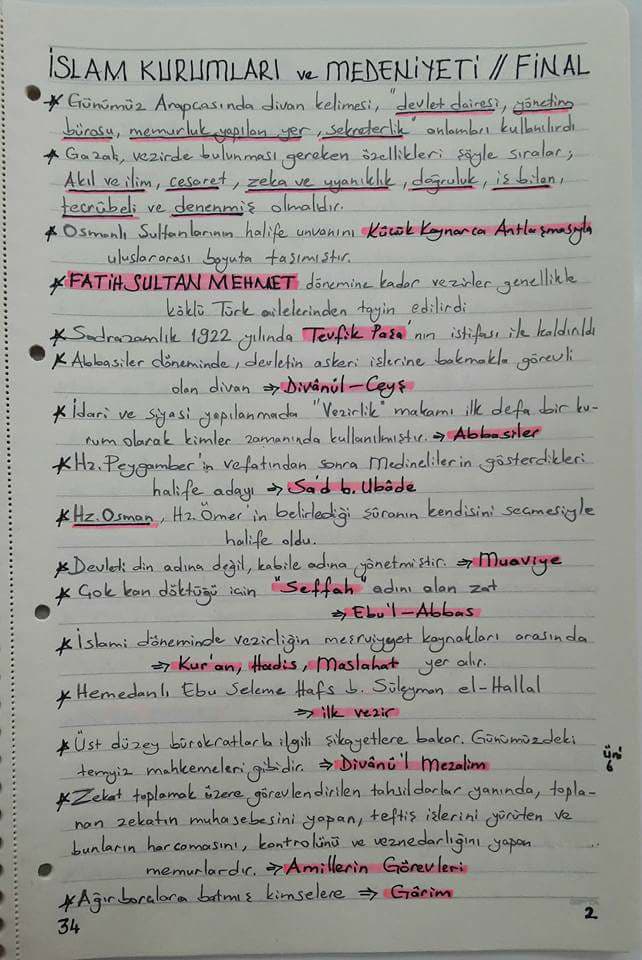 İSLAM KURUMLARI ve MEDENİYETİ // FİNAL
* Günümüz Arapçasında divan kelimesi, "devlet dairesi, yönetim
bürosu, memurluk yapılan yer, sekreterlik" anlamları kullanılırdı
* Gazali, vezirde bulunması gereken özellikleri şöyle sıralar;
Akıl ve ilim, cesaret, zeka ve uyanıklık, doğruluk, iş bilen,
tecrübeli ve denenmiş olmalıdır.
* Osmanlı Sultanlarının halife unvanını Küçük Kaynarca Antlaşmasıyla
uluslararası boyuta taşımıştır.
* FATİH SULTAN MEHMET dönemine kadar vezirler genellikle
köklü Türk ailelerinden tayin edilirdi
* Sadrazamlık 1922 yılında Tevfik Paşa'nın istifası ile kaldırıldı
* Abbasiler döneminde, devletin askeri işlerine bakmakla görevli
olan divan ⇒ Divânül-Ceyş
* İdari ve siyasi yapılanmada "Vezirlik" makamı ilk defa bir ku-
rum olarak kimler zamanında kullanılmıştır. ⇒ Abbasiler
* Hz. Peygamber'in vefatından sonra Medinelilerin gösterdikleri
halife adayı ⇒ Sa'd b. Ubâde
* Hz. Osman, Hz. Ömer'in belirlediği şûranın kendisini seçmesiyle
halife oldu.
* Devleti din adına değil, kabile adına yönetmiştir. ⇒ Muaviye
* Çok kan döktüğü için "Seffah" adını alan zat
⇒ Ebu'l-Abbas
* İslami döneminde vezirliğin meşruiyyet kaynakları arasında
⇒ Kur'an, Hadis, Maslahat yer alır.
* Hemedanlı Ebu Seleme Hafs b. Süleyman el-Hallal
⇒ ilk vezir
* Üst düzey bürokratlarla ilgili şikayetlere bakar. Günümüzdeki
temyiz mahkemeleri gibidir. ⇒ Divânü'l Mezalim
Üni
6
* Zekat toplamak üzere görevlendirilen tahsildarlar yanında, topla-
nan zekatın muhasebesini yapan, teftiş işlerini yürüten ve
bunların harcamasını, kontrolünü ve veznedarlığını yapan
memurlardır. ⇒ Amillerin Görevleri
* Ağır borçlara batmış kimselere ⇒ Gârim
34
2